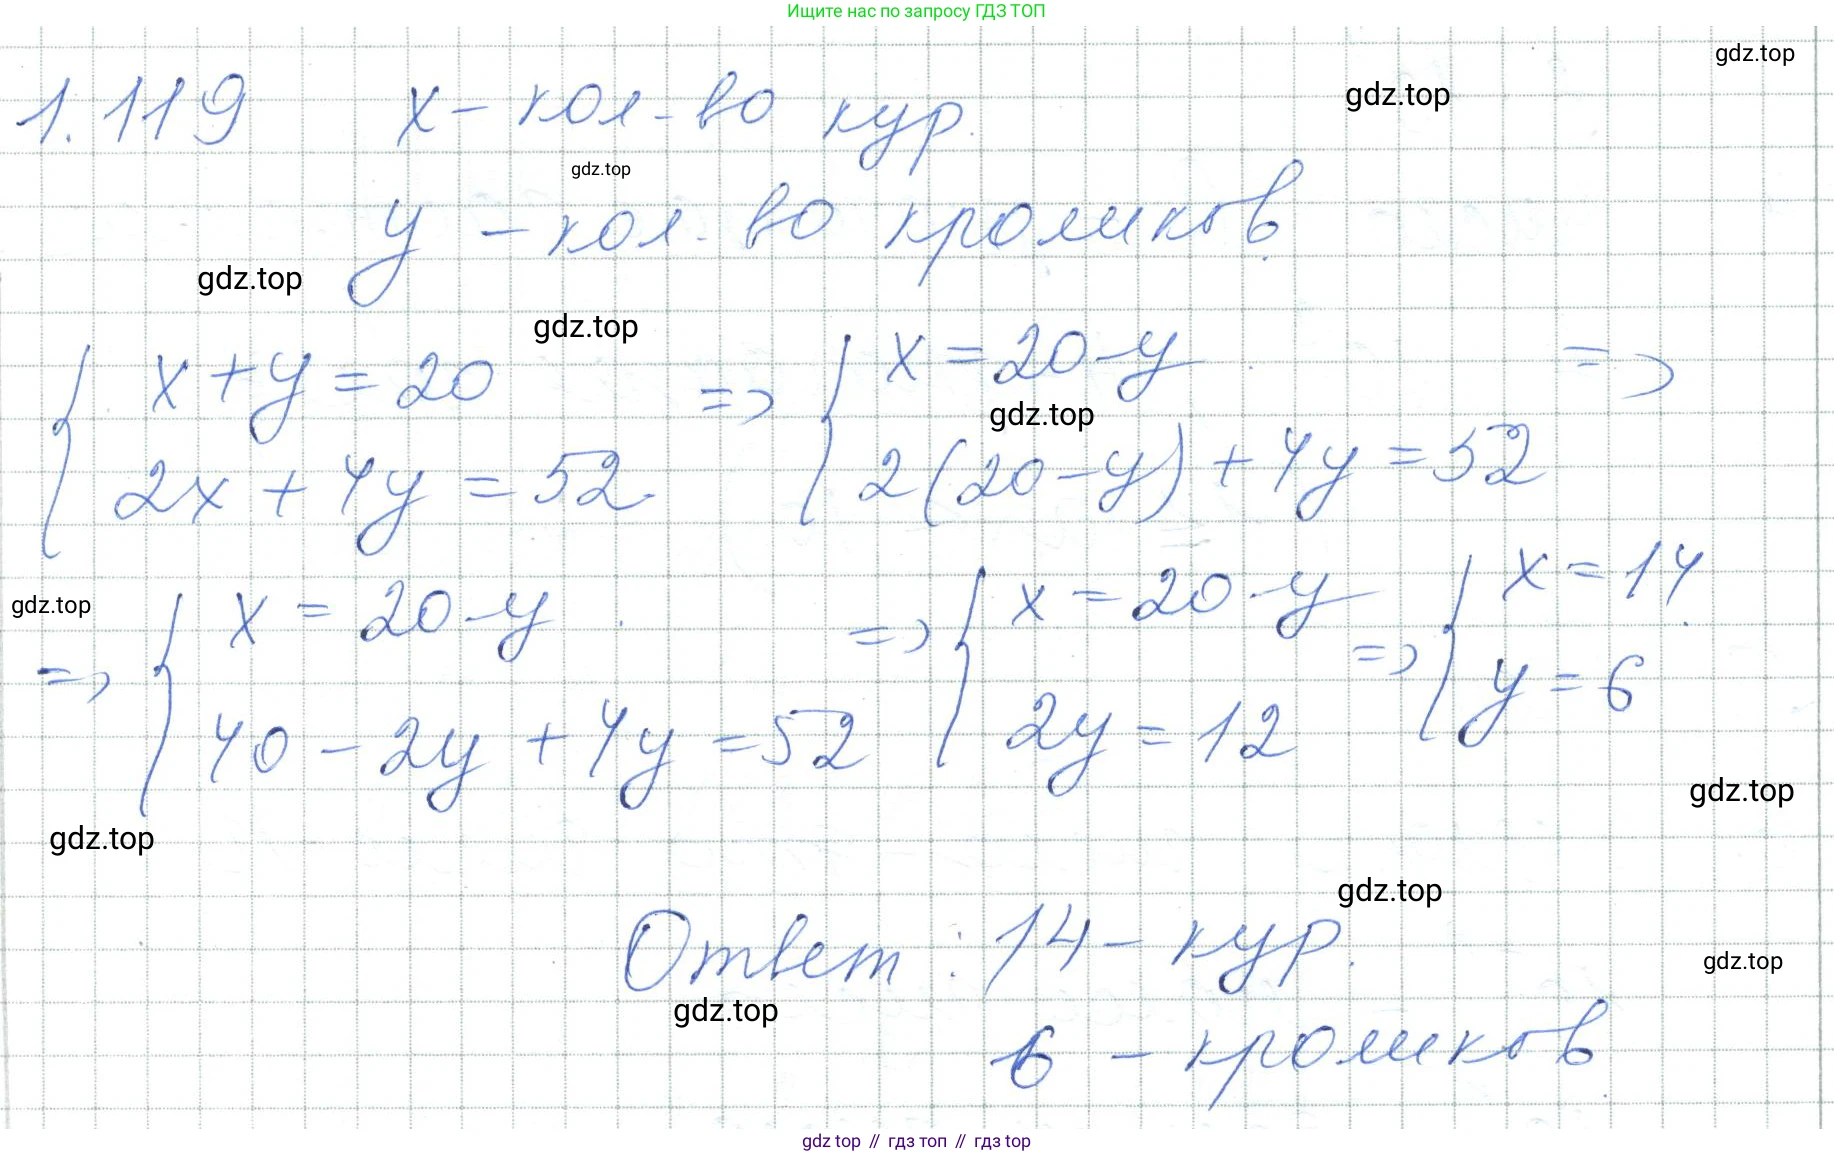 Ищите нас по запросу ГДЗ ТОП
gdz.top
gdz.top
1.119 x – кол-во кур.
gdz.top
y – кол-во кроликов.
gdz.top
gdz.top
{ x + y = 20 => { x = 20 - y =>
gdz.top
2x + 4y = 52 2(20 - y) + 4y = 52
gdz.top
=> { x = 20 - y => { x = 20 - y => { x = 14
40 - 2y + 4y = 52 2y = 12 y = 6
gdz.top
gdz.top
gdz.top
Ответ: 14 – кур.
gdz.top
gdz.top
6 – кроликов.
gdz top // гдз топ // гдз top